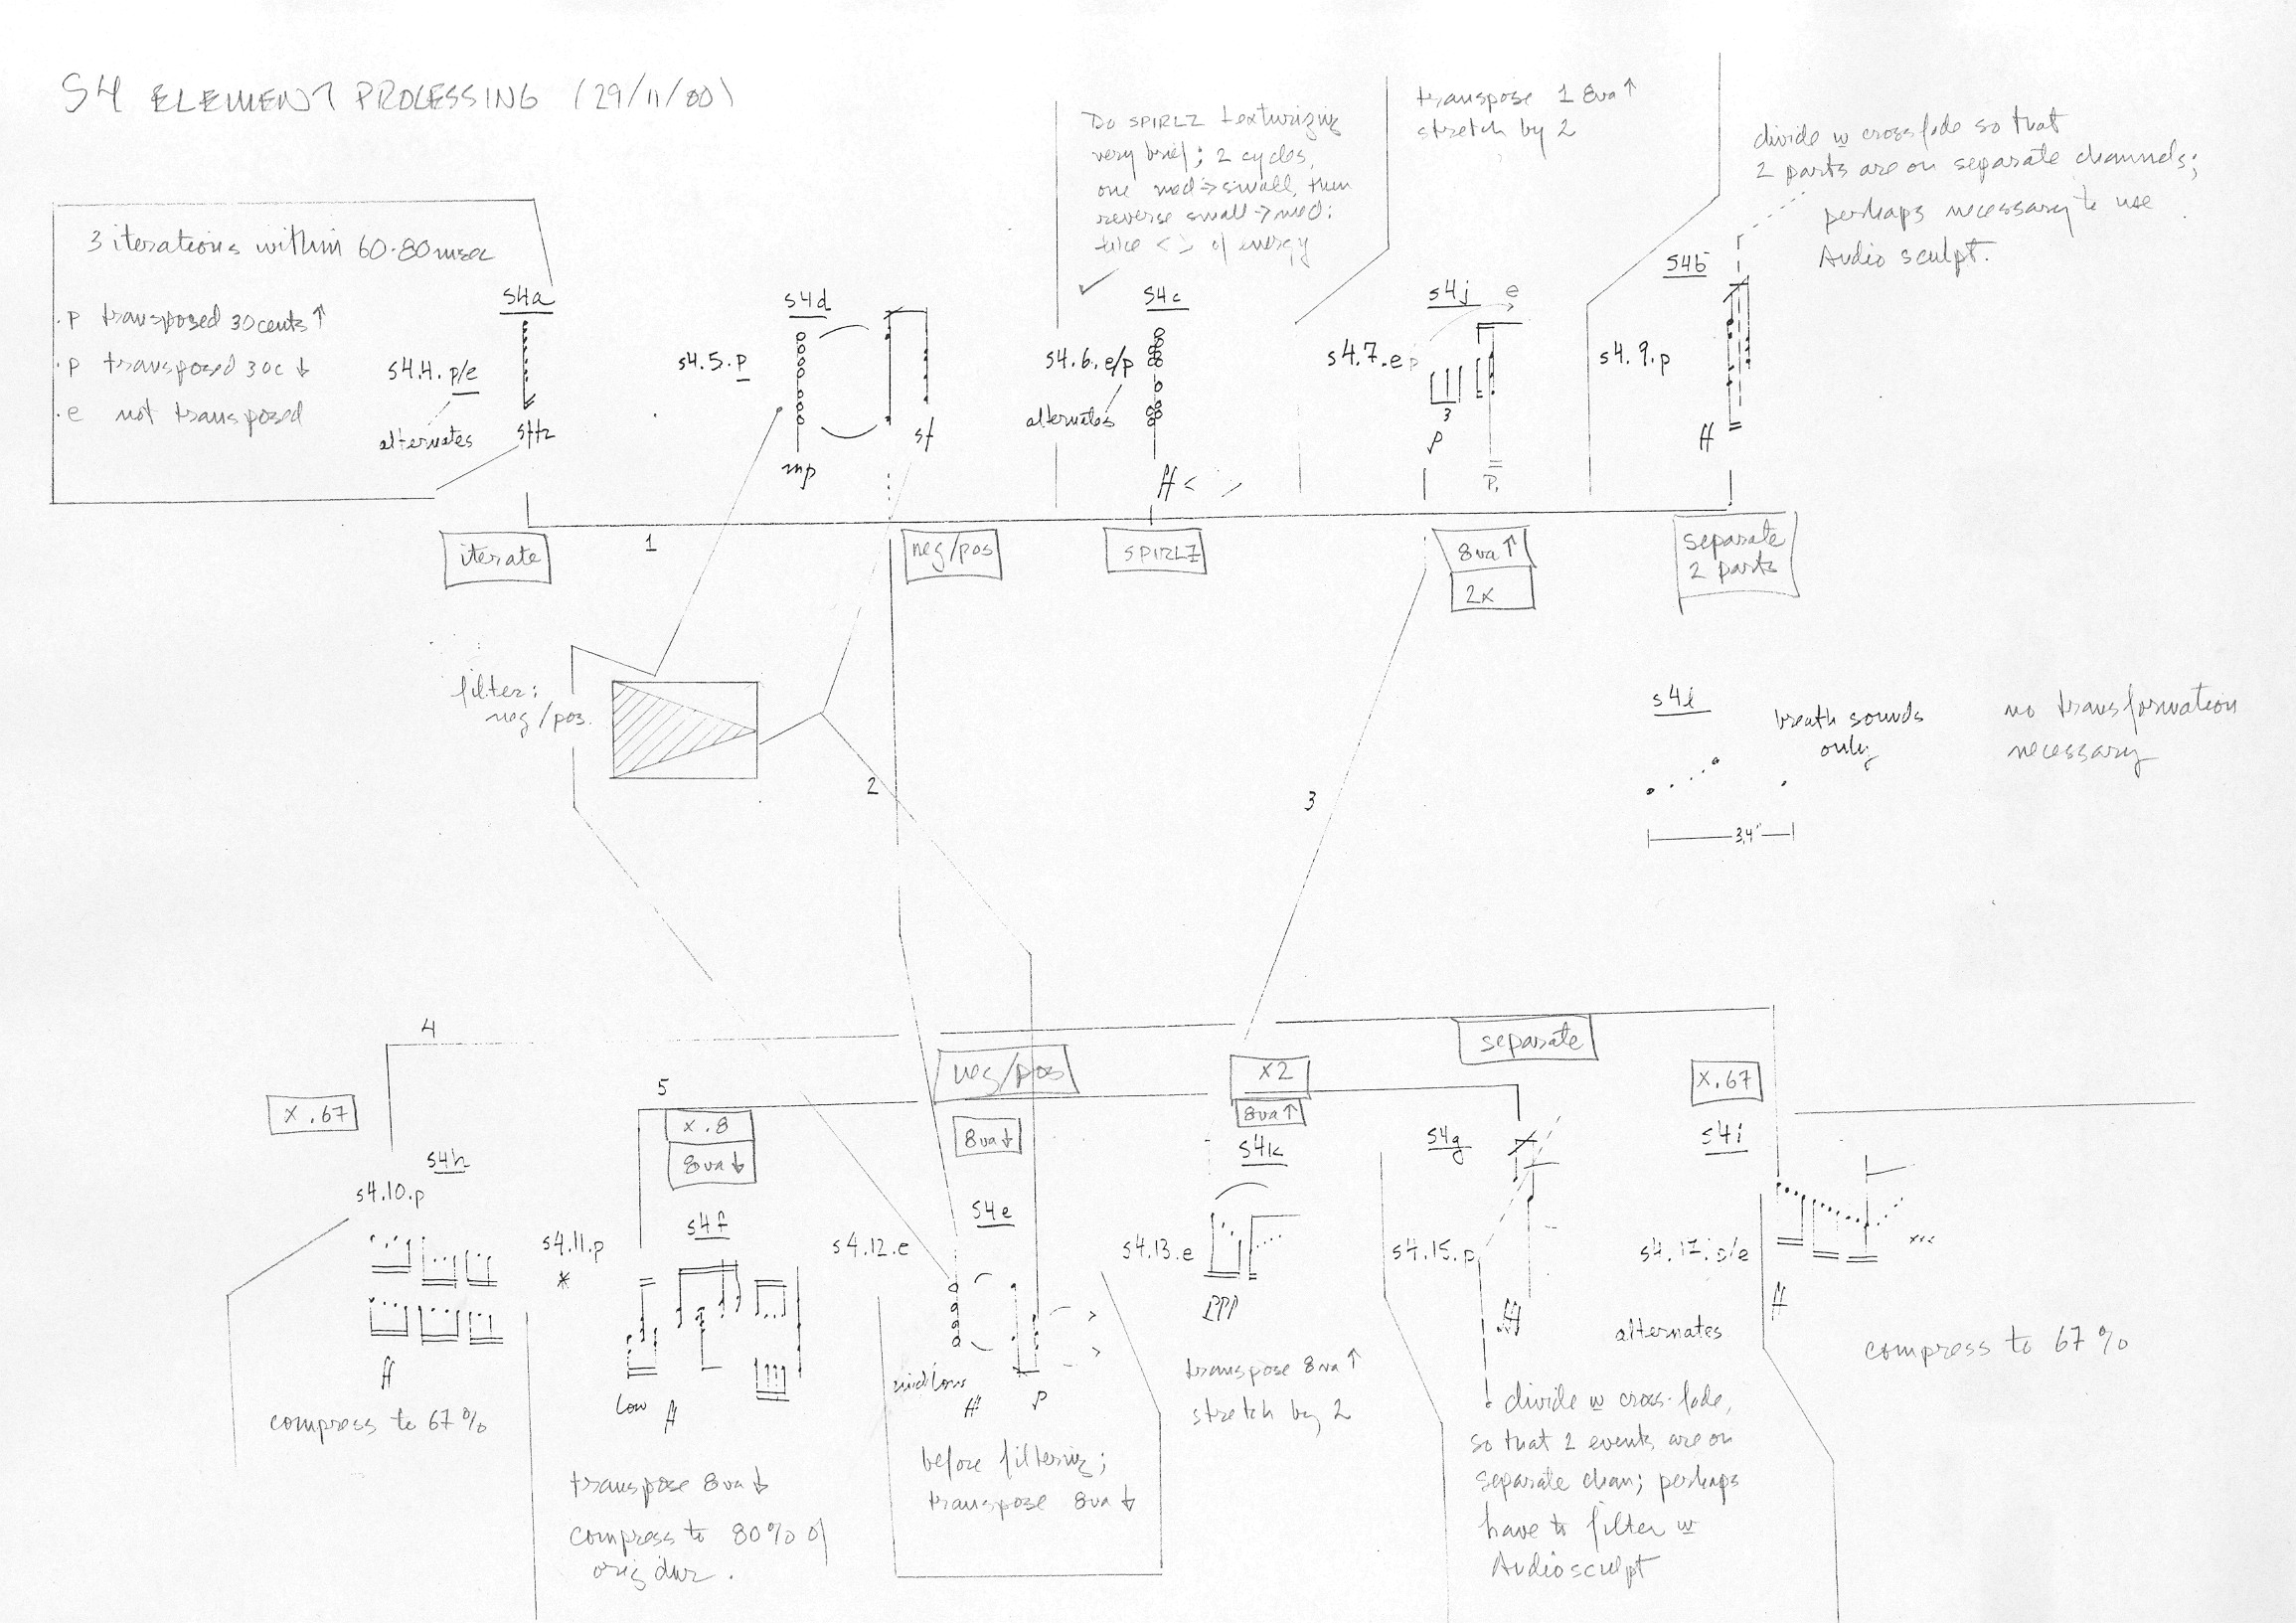 S4 ELEMENT PROCESSING (29/11/00)
3 iterations within 60-80msec
.p transposed 30cents ↑
.p transposed 30c ↓
.e not transposed
s4a
s4.4.p/e
alternates
sffz
s4d
s4.5.p
mp
sf
Do SPIRLZ texturizing
very brief; 2 cycles,
one med → small, then
reverse small → med:
like < > of energy
s4c
s4.6.e/p
alternates
ff < >
transpose 1 8va ↑
stretch by 2
s4j
e
s4.7.e p
3
p
P.
divide w cross fade so that
2 parts are on separate channels;
perhaps necessary to use
Audio sculpt.
s4b
s4.9.p
ff
1
iterate
neg/pos
SPIRLZ
8va ↑
2x
separate
2 parts
filter:
neg/pos.
2
3
s4l
breath sounds
only
no transformation
necessary
3,4"
4
separate
neg/pos
x2
5
x .67
x .8
8va ↓
8va ↓
8va ↑
x .67
s4h
s4.10.p
ff
compress to 67%
s4f
s4.11.p
*
low
ff
transpose 8va ↓
compress to 80% of
orig dur.
s4e
s4.12.e
mid low
ff
p
before filtering;
transpose 8va ↓
s4k
s4.13.e
ppp
transpose 8va ↑
stretch by 2
s4g
s4.15.p
divide w cross-fade,
so that 2 events are on
separate chan; perhaps
have to filter w
Audiosculpt
s4i
alternates
ff
compress to 67%